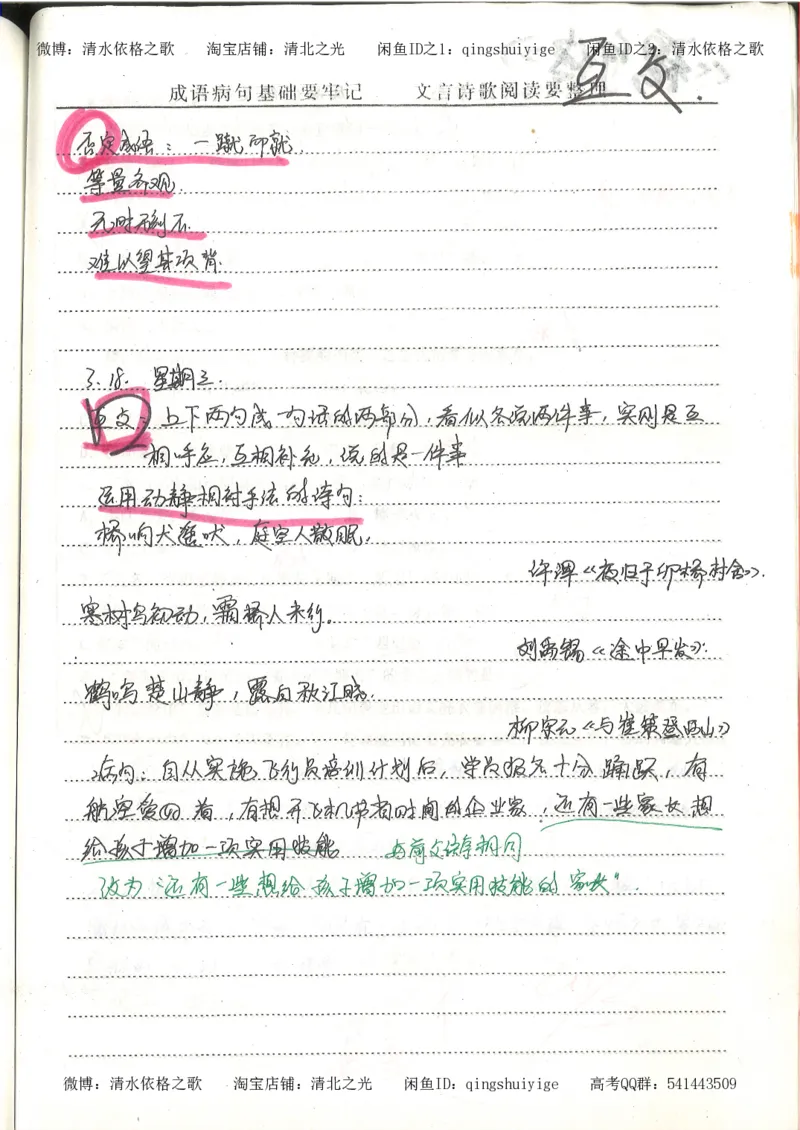 微博：清水依格之歌 淘宝店铺：清北之光 闲鱼ID之1：qingshuiyige 闲鱼ID之2：清水依格之歌
互文.
成语病句基础要牢记 文言诗歌阅读要整理
否定成语：一蹴而就.
等量齐观.
无时不刻不.
难以望其项背.
3.18. 星期三.
互文：上下两句或一句话的两部分，看似各说两件事，实则是互
相呼应，互相补充，说的是一件事
运用动静相衬手法的诗句：
桥响犬遥吠，庭空人散眠.
许浑《夜归于卯桥村舍》.
寒树鸟初动，霜桥人未行。
刘禹锡《途中早发》.
鹤鸣楚山静，露白秋江晓.
柳宗元《与崔策登西山》
病句：自从实施飞行员培训计划后，学员报名十分踊跃，有
航空爱好者，有想开飞机节省时间的企业家，还有一些家长想
给孩子增加一项实用技能
改为“还有一些想给孩子增加一项实用技能的家长”.
微博：清水依格之歌 淘宝店铺：清北之光 闲鱼ID：qingshuiyige 高考QQ群：541443509